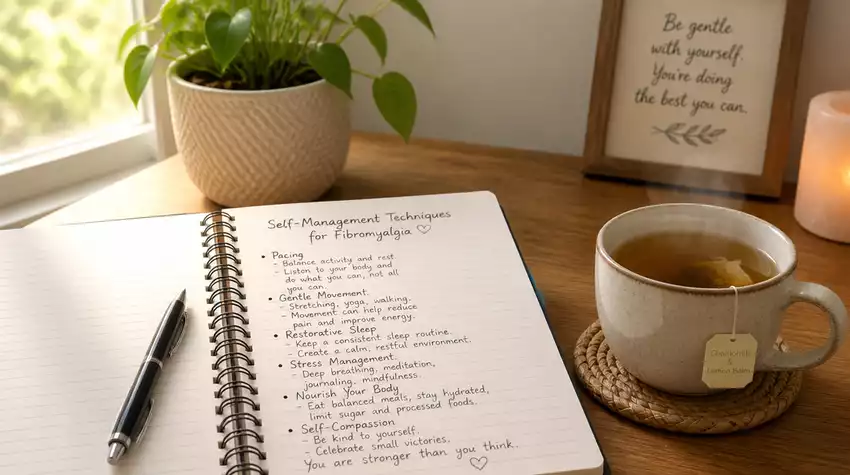 Self-Management Techniques
for Fibromyalgia ♡
• Pacing
- Balance activity and rest
- Listen to your body and
do what you can, not all
you can.
• Gentle Movement.
- Stretching, yoga, walking.
- Movement can help reduce
pain and improve energy.
• Restorative Sleep
- Keep a consistent sleep routine.
- Create a calm, restful environment.
• Stress Management.
- Deep breathing, meditation,
journaling, mindfulness.
• Nourish Your Body
- Eat balanced meals, stay hydrated,
limit sugar and processed foods.
• Self-Compassion
- Be kind to yourself.
- Celebrate small victories.
You are stronger than you think.
♡
Be gentle
with yourself.
You're doing
the best you can.
&
Lemon Balm